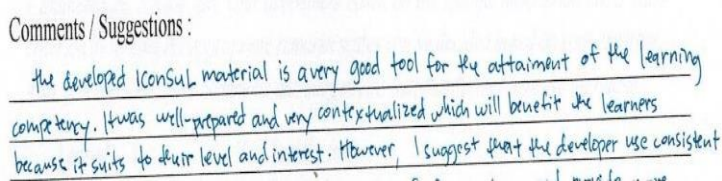 Comments / Suggestions :
the developed IConSuL material is a very good tool for the attaiment of the learning
competency. It was well-prepared and very contextualized which will benefit the learners
because it suits to their level and interest. However, I suggest that the developer use consistent